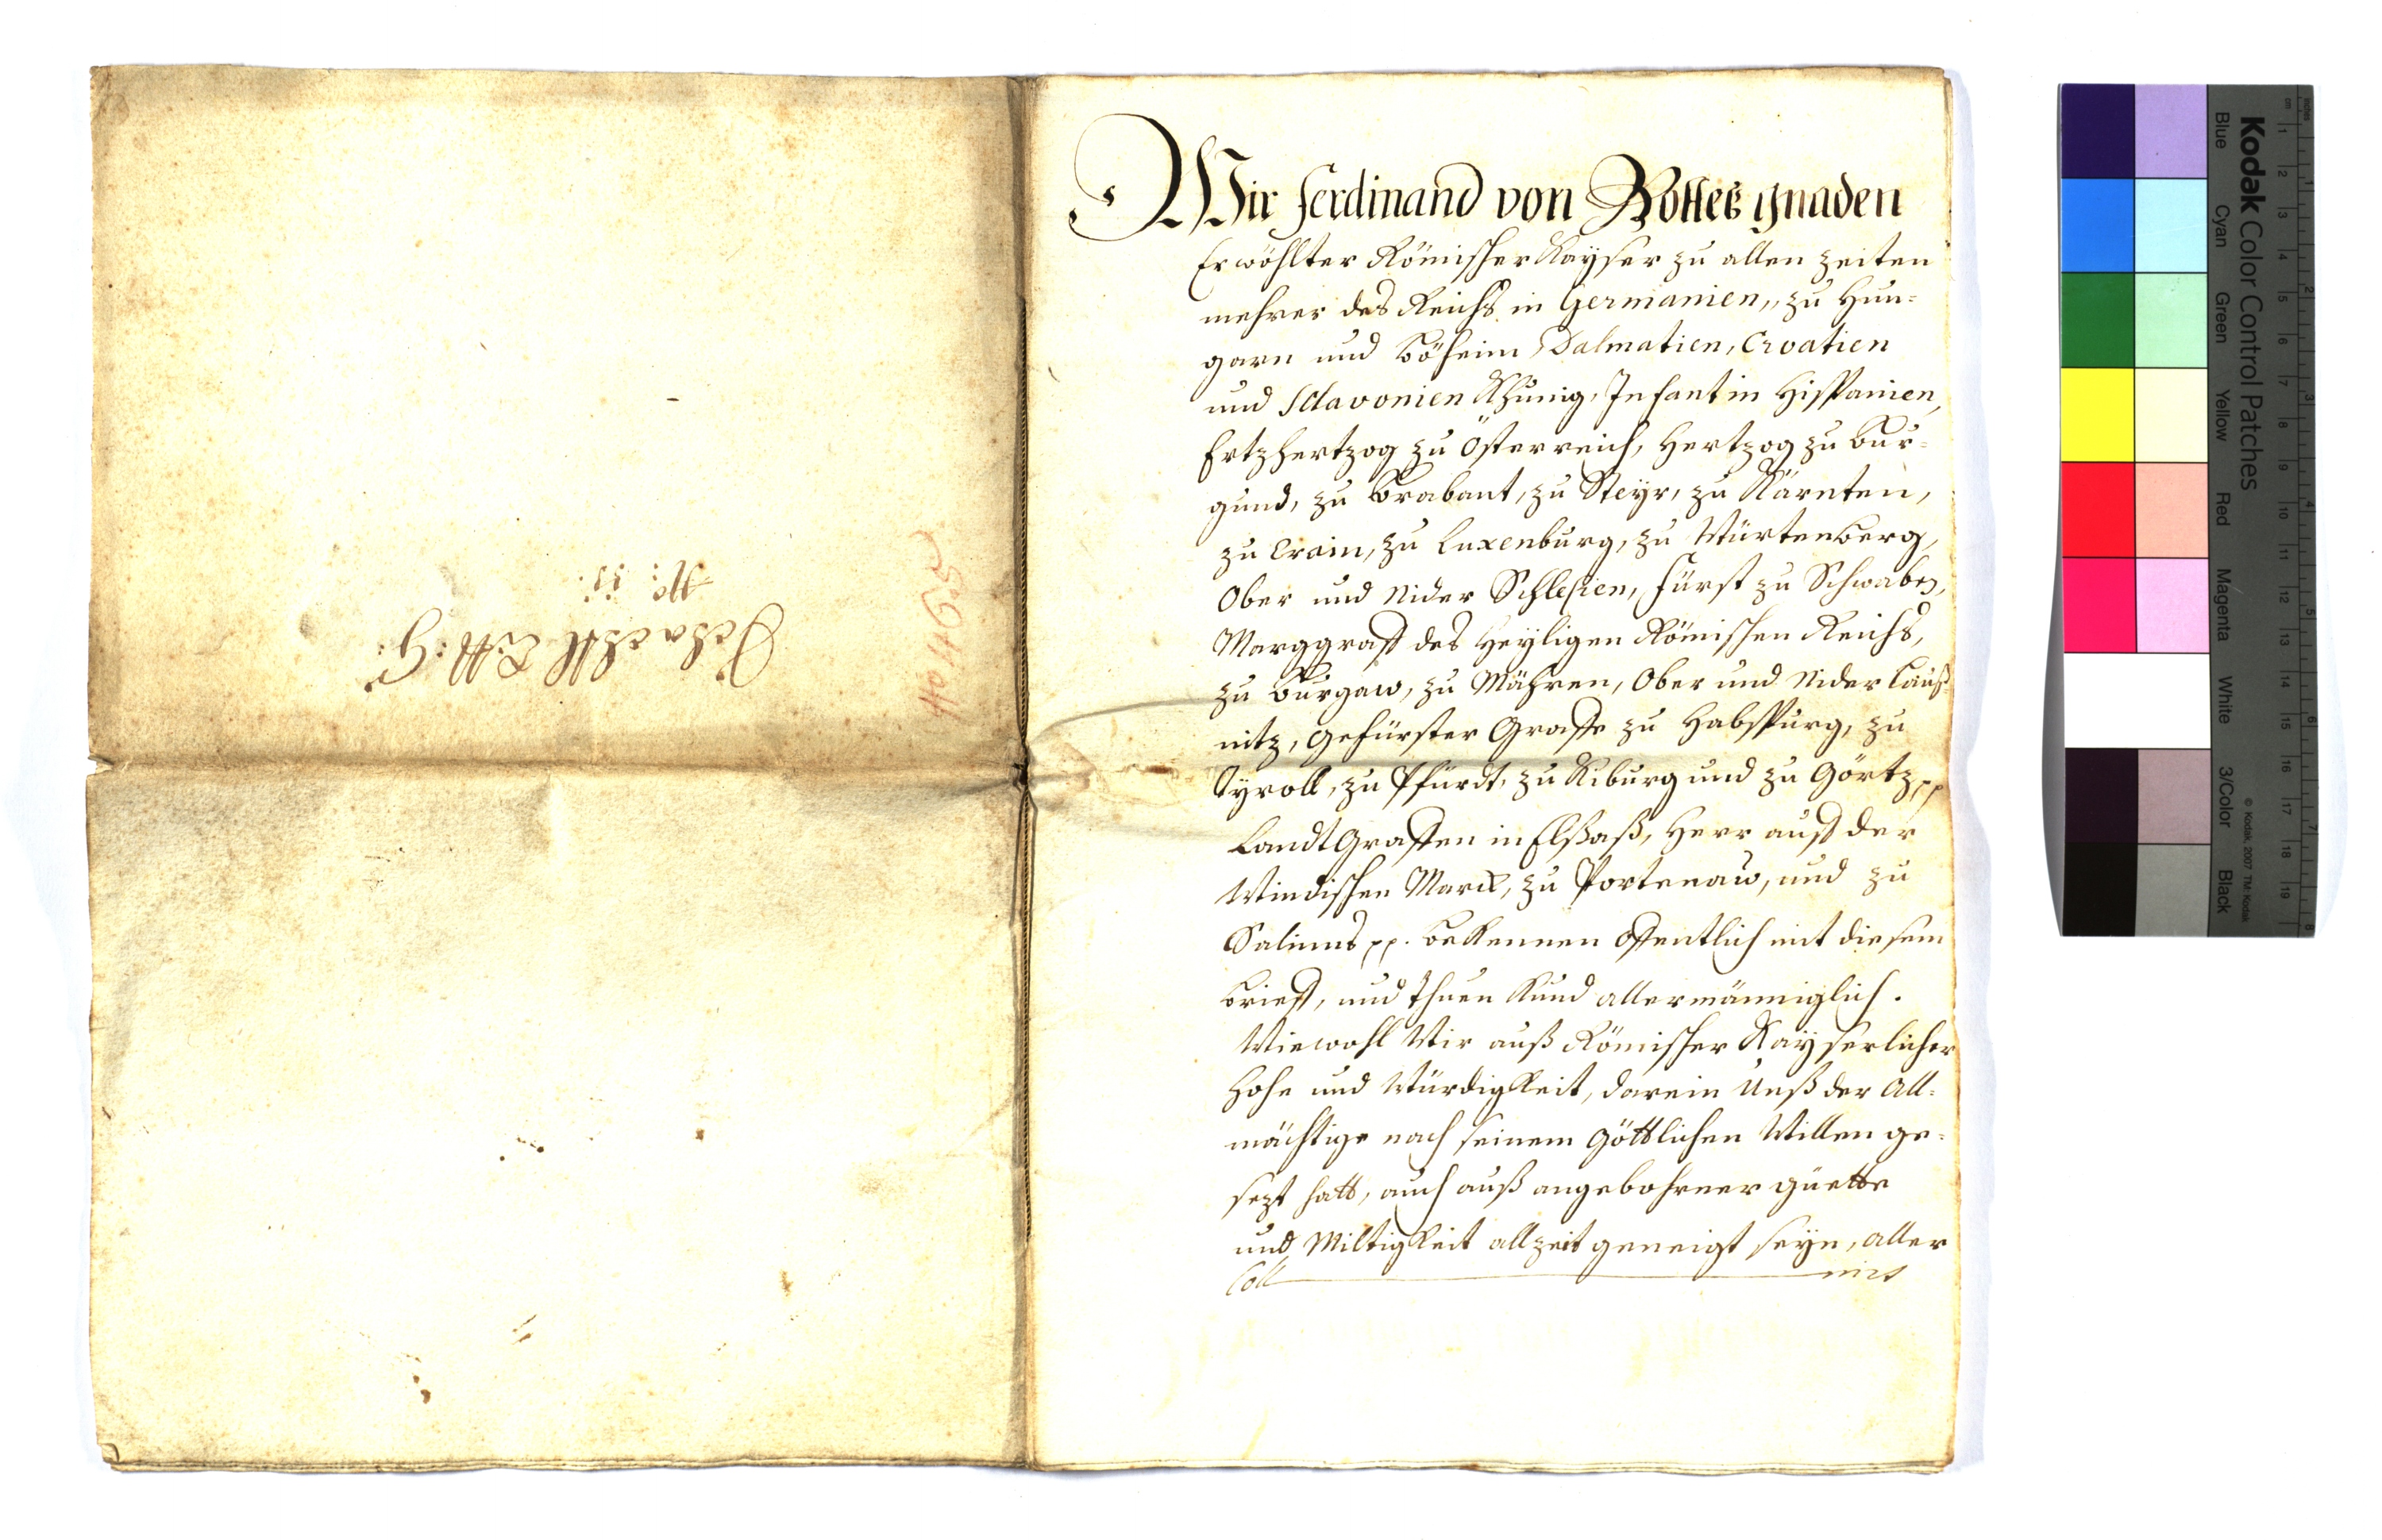 Schachtl Litt: G:
No: 11:
No 465
Wir Ferdinand von Gottes gnaden
Erwöhlter Römischer Kayser zu allen zeiten
mehrer des Reichs in Germanien,, zu Hun=
garn und Böheim Dalmatien, Croatien
und Sclavonien Khünig, Infant in Hispanien,
Ertzhertzog zu Österreich, Hertzog zu Bur=
gund, zu Brabant, zu Steyr, zu Kärnten,
zu Crain, zu Luxenburg, zu Würtenberg,
Ober und Nider Schlesien, Fürst zu Schwaben,
Marggraff des Heyligen Römischen Reichs,
zu Burgaw, zu Mähren, Ober und Nider Lauß=
nitz, Gefürster Graffe zu Habspurg, zu
Tyroll, zu Pfürdt, zu Kiburg und zu Görtz pp
Landt Graffen in Elßaß, Herr auff der
Windischen Marck, zu Portenaw, und zu
Salinns pp. Bekennen offentlich mit diesem
Brieff, und thuen Kund allermänniglich.
Wiewohl Wir auß Römischer Kayserlicher
Hohe und Würdigkeit, darein Unß der All=
mächtige nach seinem Göttlichen Willen ge=
sezt hatt, auch auß angebohrner güette
und Miltigkeit allzeit geneigt seyn, aller
Coll
Kodak Color Control Patches
© Kodak, 2007 TM: Kodak
Blue Cyan Green Yellow Red Magenta White 3/Color Black
Inches 1 2 3 4 5 6 7 8
cm 1 2 3 4 5 6 7 8 9 10 11 12 13 14 15 16 17 18 19